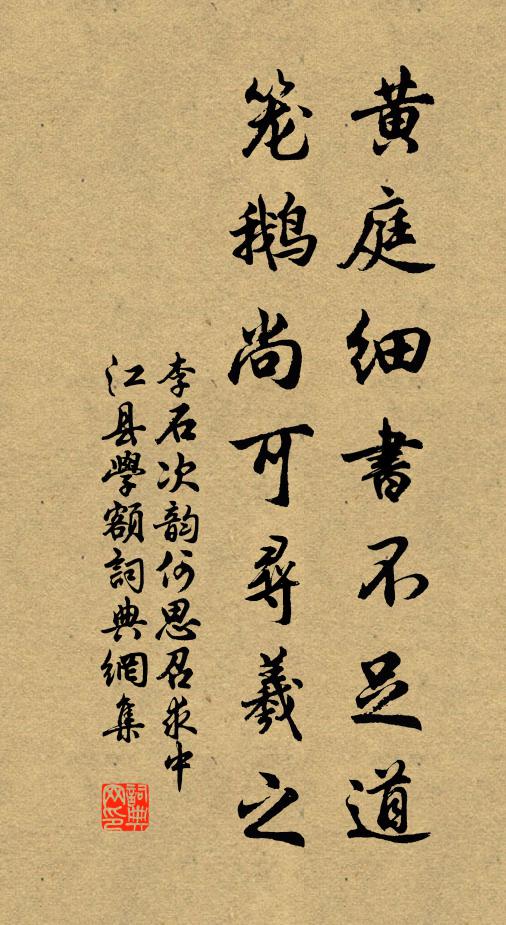 黄庭细書不足道
笼鹅尚可尋羲之
李石次韵何思召求中
江县學额詞典網集
詞典网印